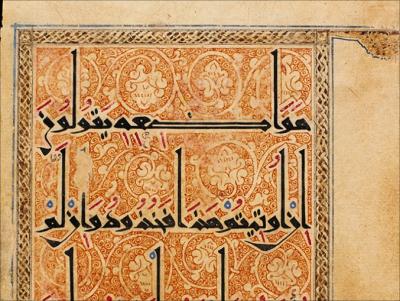 مواضعه يقولون
ان اوتيتم هذا فخذوه وان لم